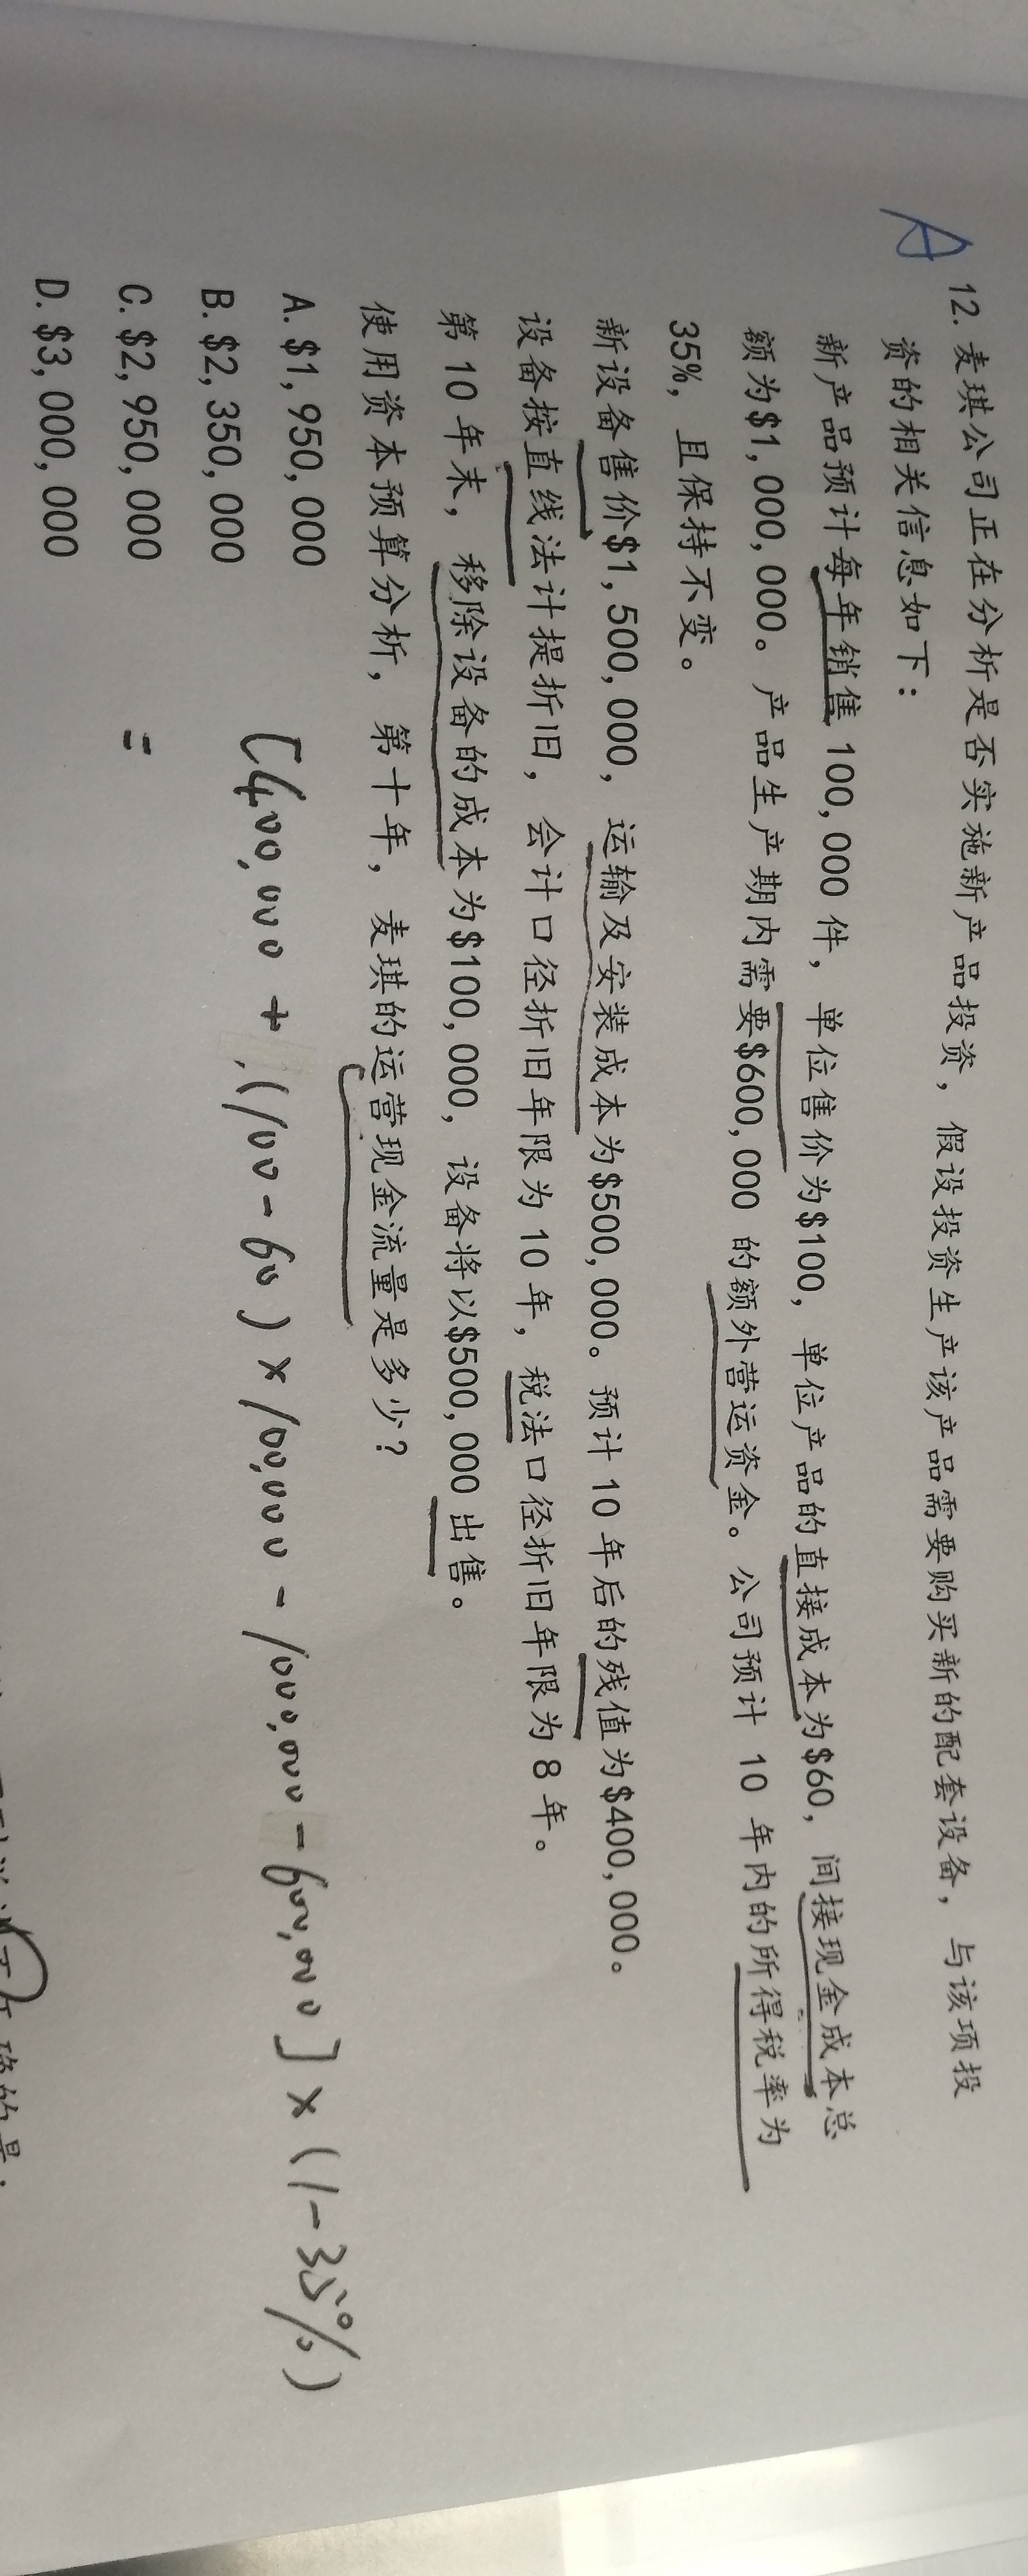 A
12. 麦琪公司正在分析是否实施新产品投资，假设投资生产该产品需要购买新的配套设备，与该项投
资的相关信息如下：
新产品预计每年销售 100,000 件，单位售价为$100，单位产品的直接成本为$60，间接现金成本总
额为$1,000,000。产品生产期内需要$600,000 的额外营运资金。公司预计 10 年内的所得税率为
35%，且保持不变。
新设备售价$1,500,000，运输及安装成本为$500,000。预计 10 年后的残值为$400,000。
设备按直线法计提折旧，会计口径折旧年限为 10 年，税法口径折旧年限为 8 年。
第 10 年末，移除设备的成本为$100,000，设备将以$500,000 出售。
使用资本预算分析，第十年，麦琪的运营现金流量是多少？
A. $1,950,000
B. $2,350,000
C. $2,950,000
D. $3,000,000
[400,000 + (100-60)×100,000 - 1000,000 - 600,000]×(1-35%)
=